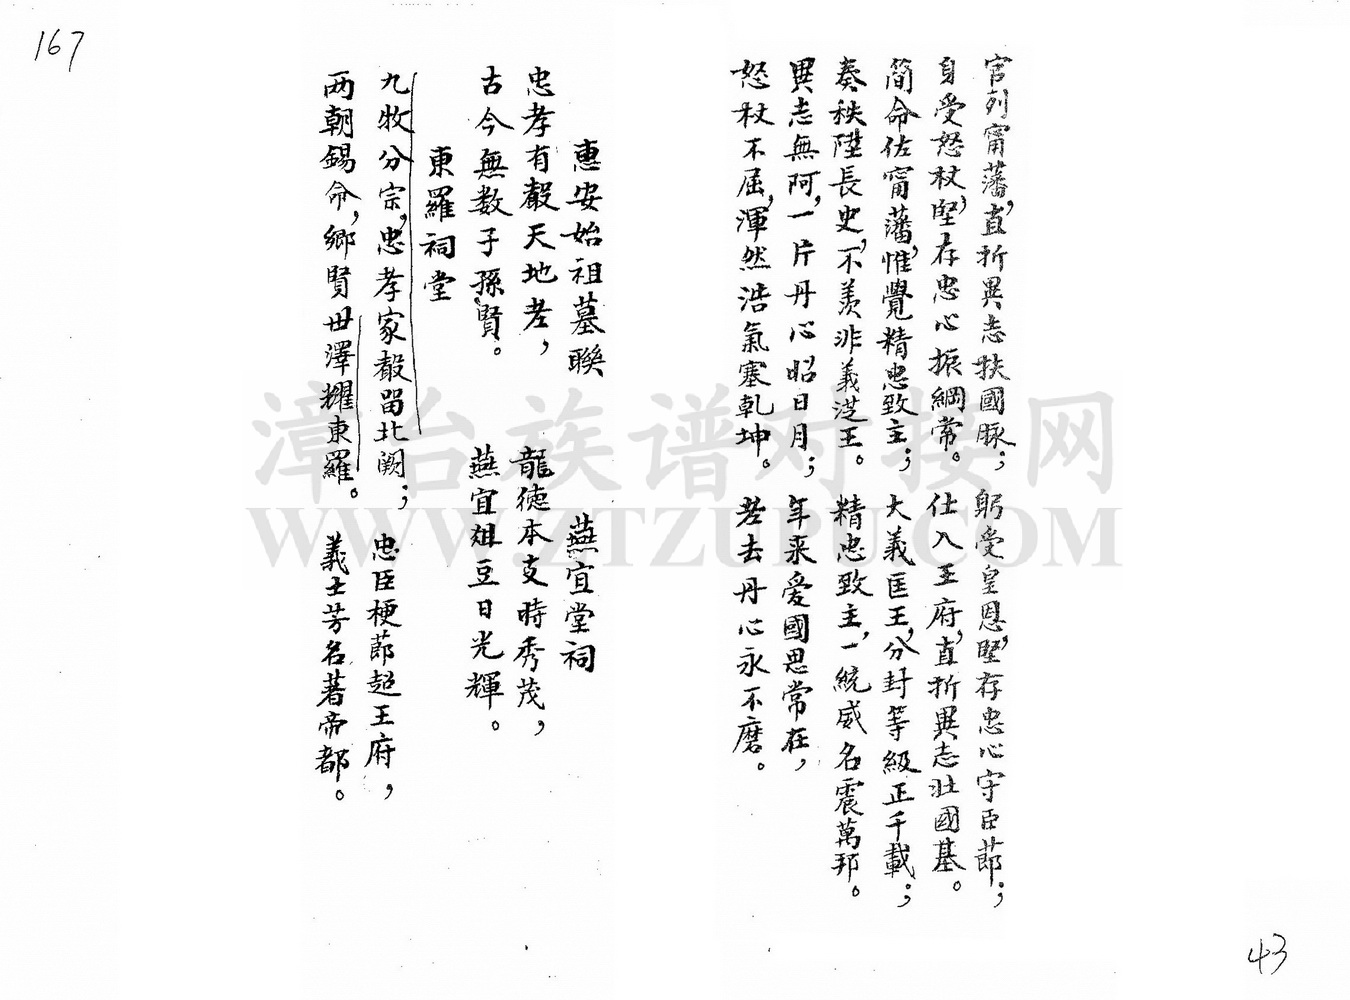 167
官列甯藩，直折異志扶國脉；
身受怒杖，堅存忠心振綱常。
簡命佐甯藩，惟覺精忠致主；
奏秩陞長史，不羨非義從王。
異志無阿，一片丹心昭日月；
怒杖不屈，渾然浩氣塞乾坤。
躬受皇恩，堅存忠心守臣莭；
仕入王府，直折異志壯國基。
大義匡王，分封等級正千載；
精忠致主，一統威名震萬邦。
年来爱國思常在，
老去丹心永不磨。
惠安始祖墓聯
忠孝有聲天地老，
古今無数子孫賢。
燕宜堂祠
龍德本支時秀茂，
燕宜俎豆日光輝。
東羅祠堂
九牧分宗，忠孝家聲留北阙；
两朝錫命，鄉賢世澤耀東羅。
忠臣梗莭超王府，
義士芳名著帝都。
43
漳台族谱对接网
WWW.ZTZUPU.COM